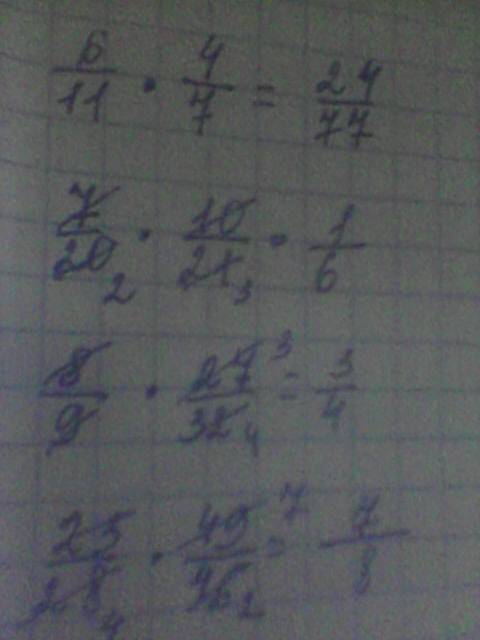 6/11 · 4/7 = 24/77
7/20 2 · 10/21 3 · 1/6
8/9 · 27 3/32 4 = 3/4
25/28 4 · 49 7/ 2 = 7/8